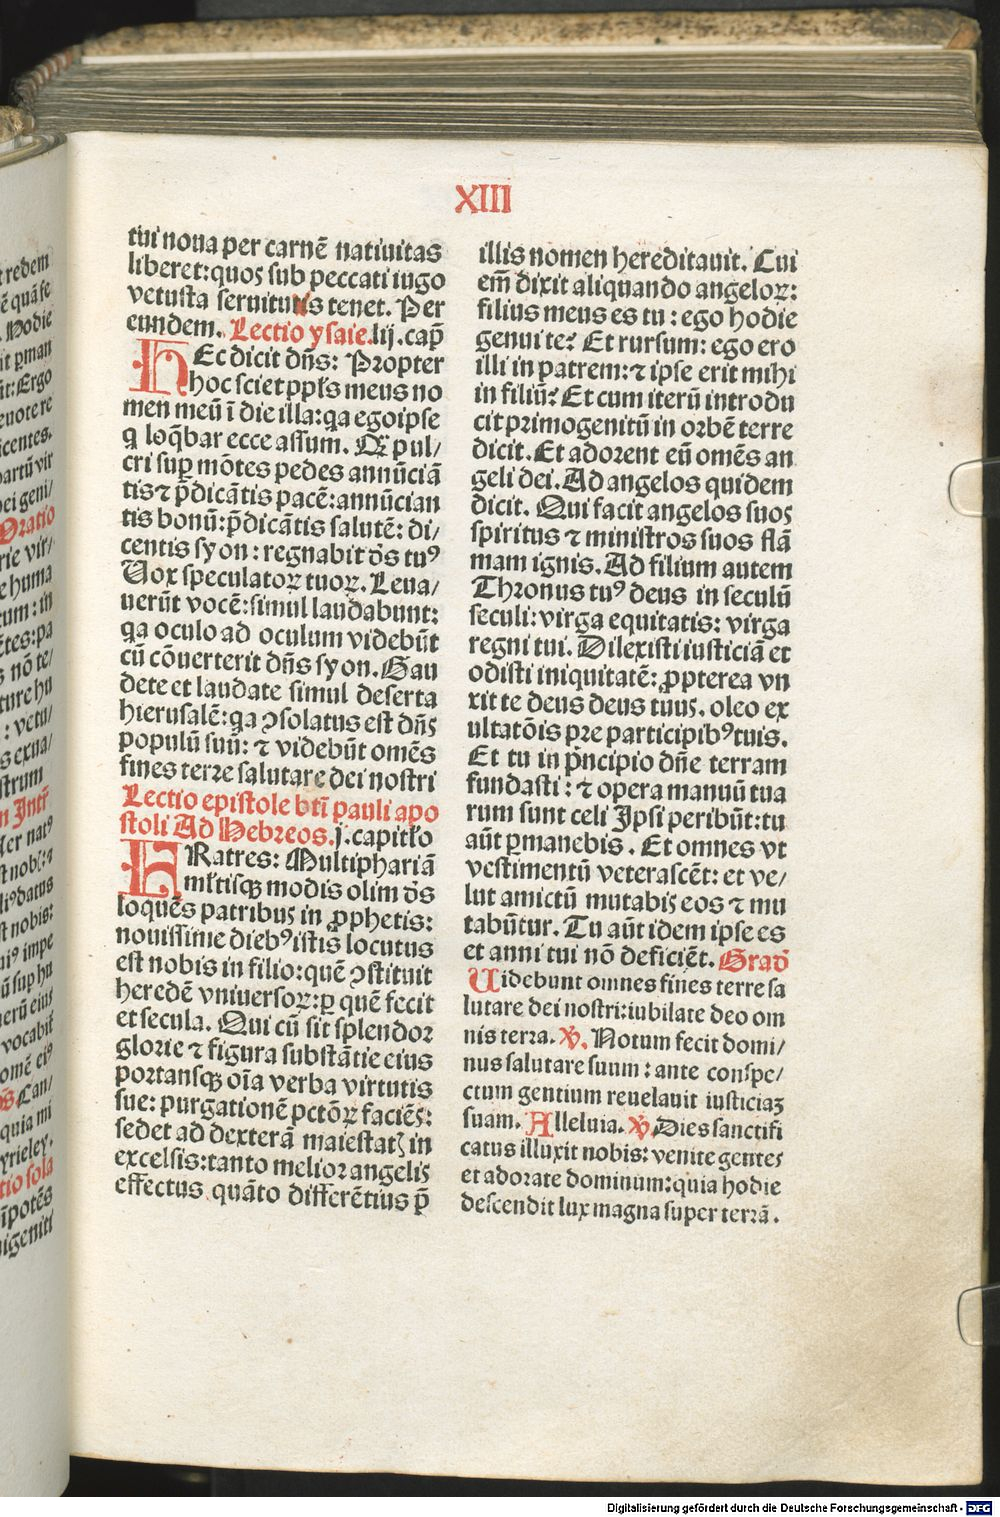 XIII
tui noua per carnē natiuitas
liberet: quos sub peccati iugo
vetusta seruitutis tenet. Per
eundem. Lectio ysaie. lij. cap̄
HEc dicit dn̄s: Propter
hoc sciet ppl̄s meus no
men meū ī die illa: qa egoipse
q loq̄bar ecce assum. Q̄ pul/
cri suꝑ mōtes pedes annūciā
tis ⁊ p̄dicātis pacē: annūcian
tis bonū: p̄dicātis salutē: di/
centis syon: regnabit ds̄ tuꝰ
Uox speculatoꝝ tuoꝝ. Leua/
uerūt vocē: simul laudabunt:
qa oculo ad oculum videbūt
cū cōuerterit dn̄s syon. Gau
dete et laudate simul deserta
hierusalē: qa ꝯsolatus est dn̄s
populū suū: ⁊ videbūt omēs
fines terre salutare dei nostri
Lectio epistole bt̄i pauli apo
stoli Ad Hebreos. j. capitl̄o
FRatres: Multiphariā
ml̄tisqꝫ modis olim ds̄
loquēs patribus in ꝓphetis:
nouissime diebꝰ istis locutus
est nobis in filio: quē ꝯstituit
heredē vniuersoꝝ: ꝑ quē fecit
et secula. Qui cū sit splendor
glorie ⁊ figura substātie eius
portansqꝫ oīa verba virtutis
sue: purgationē pctōꝝ faciēs:
sedet ad dexterā maiestatꝭ in
excelsis: tanto melior angelis
effectus quāto differētius p̄
illis nomen hereditauit. Cui
em̄ dixit aliquando angeloꝝ:
filius meus es tu: ego hodie
genui te? Et rursum: ego ero
illi in patrem: ⁊ ipse erit mihi
in filiū? Et cum iterū introdu
cit primogenitū in orbē terre
dicit. Et adorent eū omēs an
geli dei. Ad angelos quidem
dicit. Qui facit angelos suos
spiritus ⁊ ministros suos flā
mam ignis. Ad filium autem
Thronus tuꝰ deus in seculū
seculi: virga equitatis: virga
regni tui. Dilexisti iusticiā et
odisti iniquitatē: ꝓpterea vn
xit te deus deus tuus. oleo ex
ultatōis pre participibꝰ tuis.
Et tu in p̄ncipio dn̄e terram
fundasti: ⁊ opera manuū tua
rum sunt celi Ipsi peribūt: tu
aūt ꝑmanebis. Et omnes vt
vestimentū veterascēt: et ve/
lut amictū mutabis eos ⁊ mu
tabūtur. Tu aūt idem ipse es
et anni tui nō deficiēt. Grad̄
Uidebunt omnes fines terre sa
lutare dei nostri: iubilate deo om
nis terra. ℣. Notum fecit domi/
nus salutare suum: ante conspe/
ctum gentium reuelauit iusticiaꝫ
suam. Alleluia. ℣. Dies sanctifi
catus illuxit nobis: venite gentes
et adorate dominum: quia hodie
descendit lux magna super terrā.
Digitalisierung gefördert durch die Deutsche Forschungsgemeinschaft - DFG